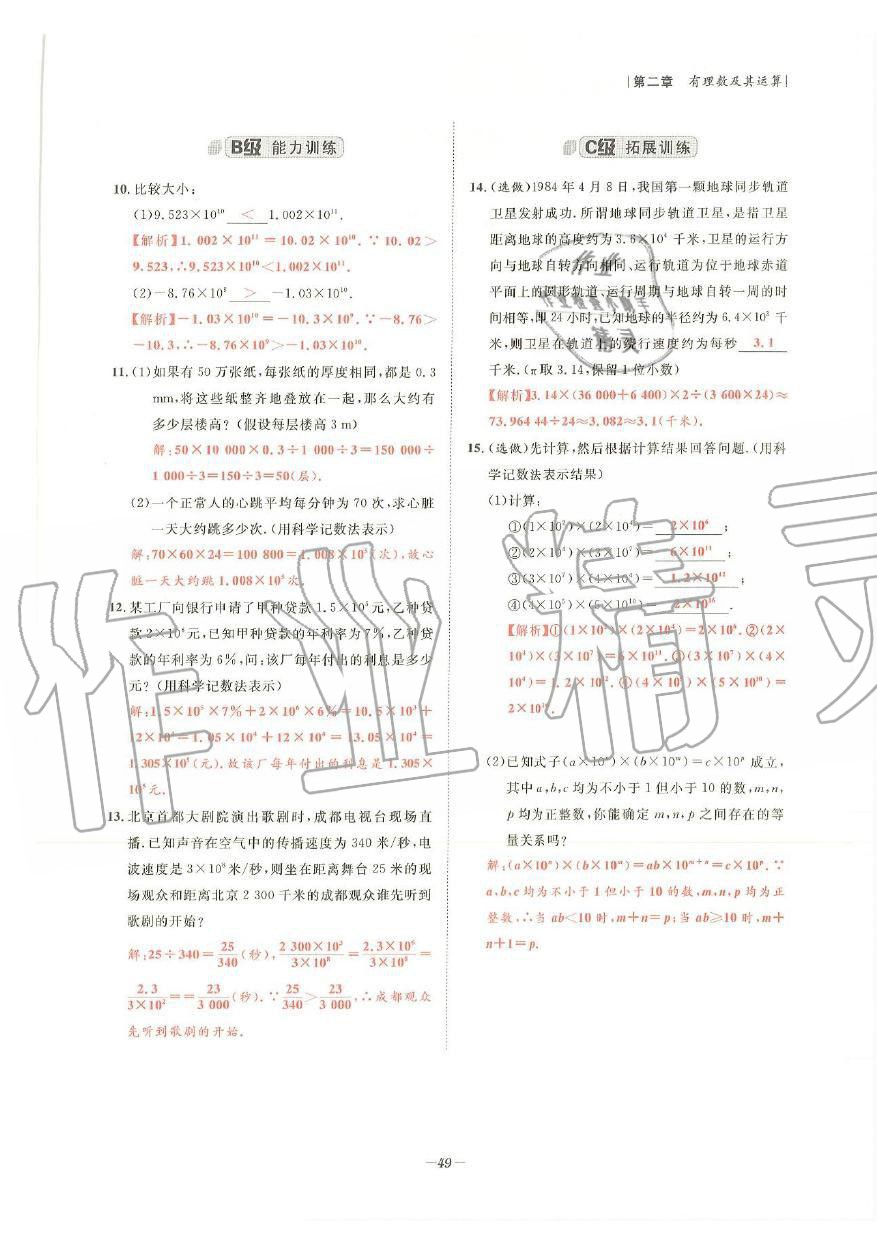 第二章 有理数及其运算
B级 能力训练
10.比较大小:
(1)9.523×10¹⁰ < 1.002×10¹¹.
【解析】1.002×10¹¹=10.02×10¹⁰.∵10.02>
9.523,∴9.523×10¹⁰<1.002×10¹¹.
(2)-8.76×10⁹ > -1.03×10¹⁰.
【解析】-1.03×10¹⁰=-10.3×10⁹.∵-8.76>
-10.3,∴-8.76×10⁹>-1.03×10¹⁰.
11.(1)如果有50万张纸,每张纸的厚度相同,都是0.3
mm,将这些纸整齐地叠放在一起,那么大约有
多少层楼高?(假设每层楼高3 m)
解:50×10 000×0.3÷1 000÷3=150 000÷
1 000÷3=150÷3=50(层).
(2)一个正常人的心跳平均每分钟为70次,求心脏
一天大约跳多少次.(用科学记数法表示)
解:70×60×24=100 800=1.008×10⁵(次),故心
脏一天大约跳1.008×10⁵次.
12.某工厂向银行申请了甲种贷款1.5×10⁵元,乙种贷
款2×10⁶元,已知甲种贷款的年利率为7%,乙种贷
款的年利率为6%,问:该厂每年付出的利息是多少
元?(用科学记数法表示)
解:1.5×10⁵×7%+2×10⁶×6%=10.5×10³+
12×10⁴=1.05×10⁴+12×10⁴=13.05×10⁴=
1.305×10⁵(元).故该厂每年付出的利息是1.305×
10⁵元.
13.北京首都大剧院演出歌剧时,成都电视台现场直
播.已知声音在空气中的传播速度为340米/秒,电
波速度是3×10⁸米/秒,则坐在距离舞台25米的现
场观众和距离北京2 300千米的成都观众谁先听到
歌剧的开始?
解:25÷340=25/340(秒),2 300×10³/3×10⁸=2.3×10⁶/3×10⁸=
2.3/3×10²==23/3 000(秒).∵25/340>23/3 000,∴成都观众
先听到歌剧的开始.
C级 拓展训练
14.(选做)1984年4月8日,我国第一颗地球同步轨道
卫星发射成功.所谓地球同步轨道卫星,是指卫星
距离地球的高度约为3.6×10⁴千米,卫星的运行方
向与地球自转方向相同、运行轨道为位于地球赤道
平面上的圆形轨道、运行周期与地球自转一周的时
间相等,即24小时,已知地球的半径约为6.4×10³千
米,则卫星在轨道上的绕行速度约为每秒 3.1
千米.(π取3.14,保留1位小数)
【解析】3.14×(36 000+6 400)×2÷(3 600×24)≈
73.964 44÷24≈3.082≈3.1(千米).
15.(选做)先计算,然后根据计算结果回答问题.(用科
学记数法表示结果)
(1)计算:
①(1×10²)×(2×10⁴)= 2×10⁶ ;
②(2×10⁴)×(3×10⁷)= 6×10¹¹ ;
③(3×10⁷)×(4×10⁴)= 1.2×10¹² ;
④(4×10⁵)×(5×10¹⁰)= 2×10¹⁶ .
【解析】①(1×10²)×(2×10⁴)=2×10⁶.②(2×
10⁴)×(3×10⁷)=6×10¹¹.③(3×10⁷)×(4×
10⁴)=1.2×10¹².④(4×10⁵)×(5×10¹⁰)=
2×10¹⁶.
(2)已知式子(a×10ⁿ)×(b×10ᵐ)=c×10ᵖ成立,
其中a,b,c均为不小于1但小于10的数,m,n,
p均为正整数,你能确定m,n,p之间存在的等
量关系吗?
解:(a×10ⁿ)×(b×10ᵐ)=ab×10ᵐ⁺ⁿ=c×10ᵖ.∵
a,b,c均为不小于1但小于10的数,m,n,p均为正
整数,∴当ab<10时,m+n=p;当ab≥10时,m+
n+1=p.
—49—
作业精灵